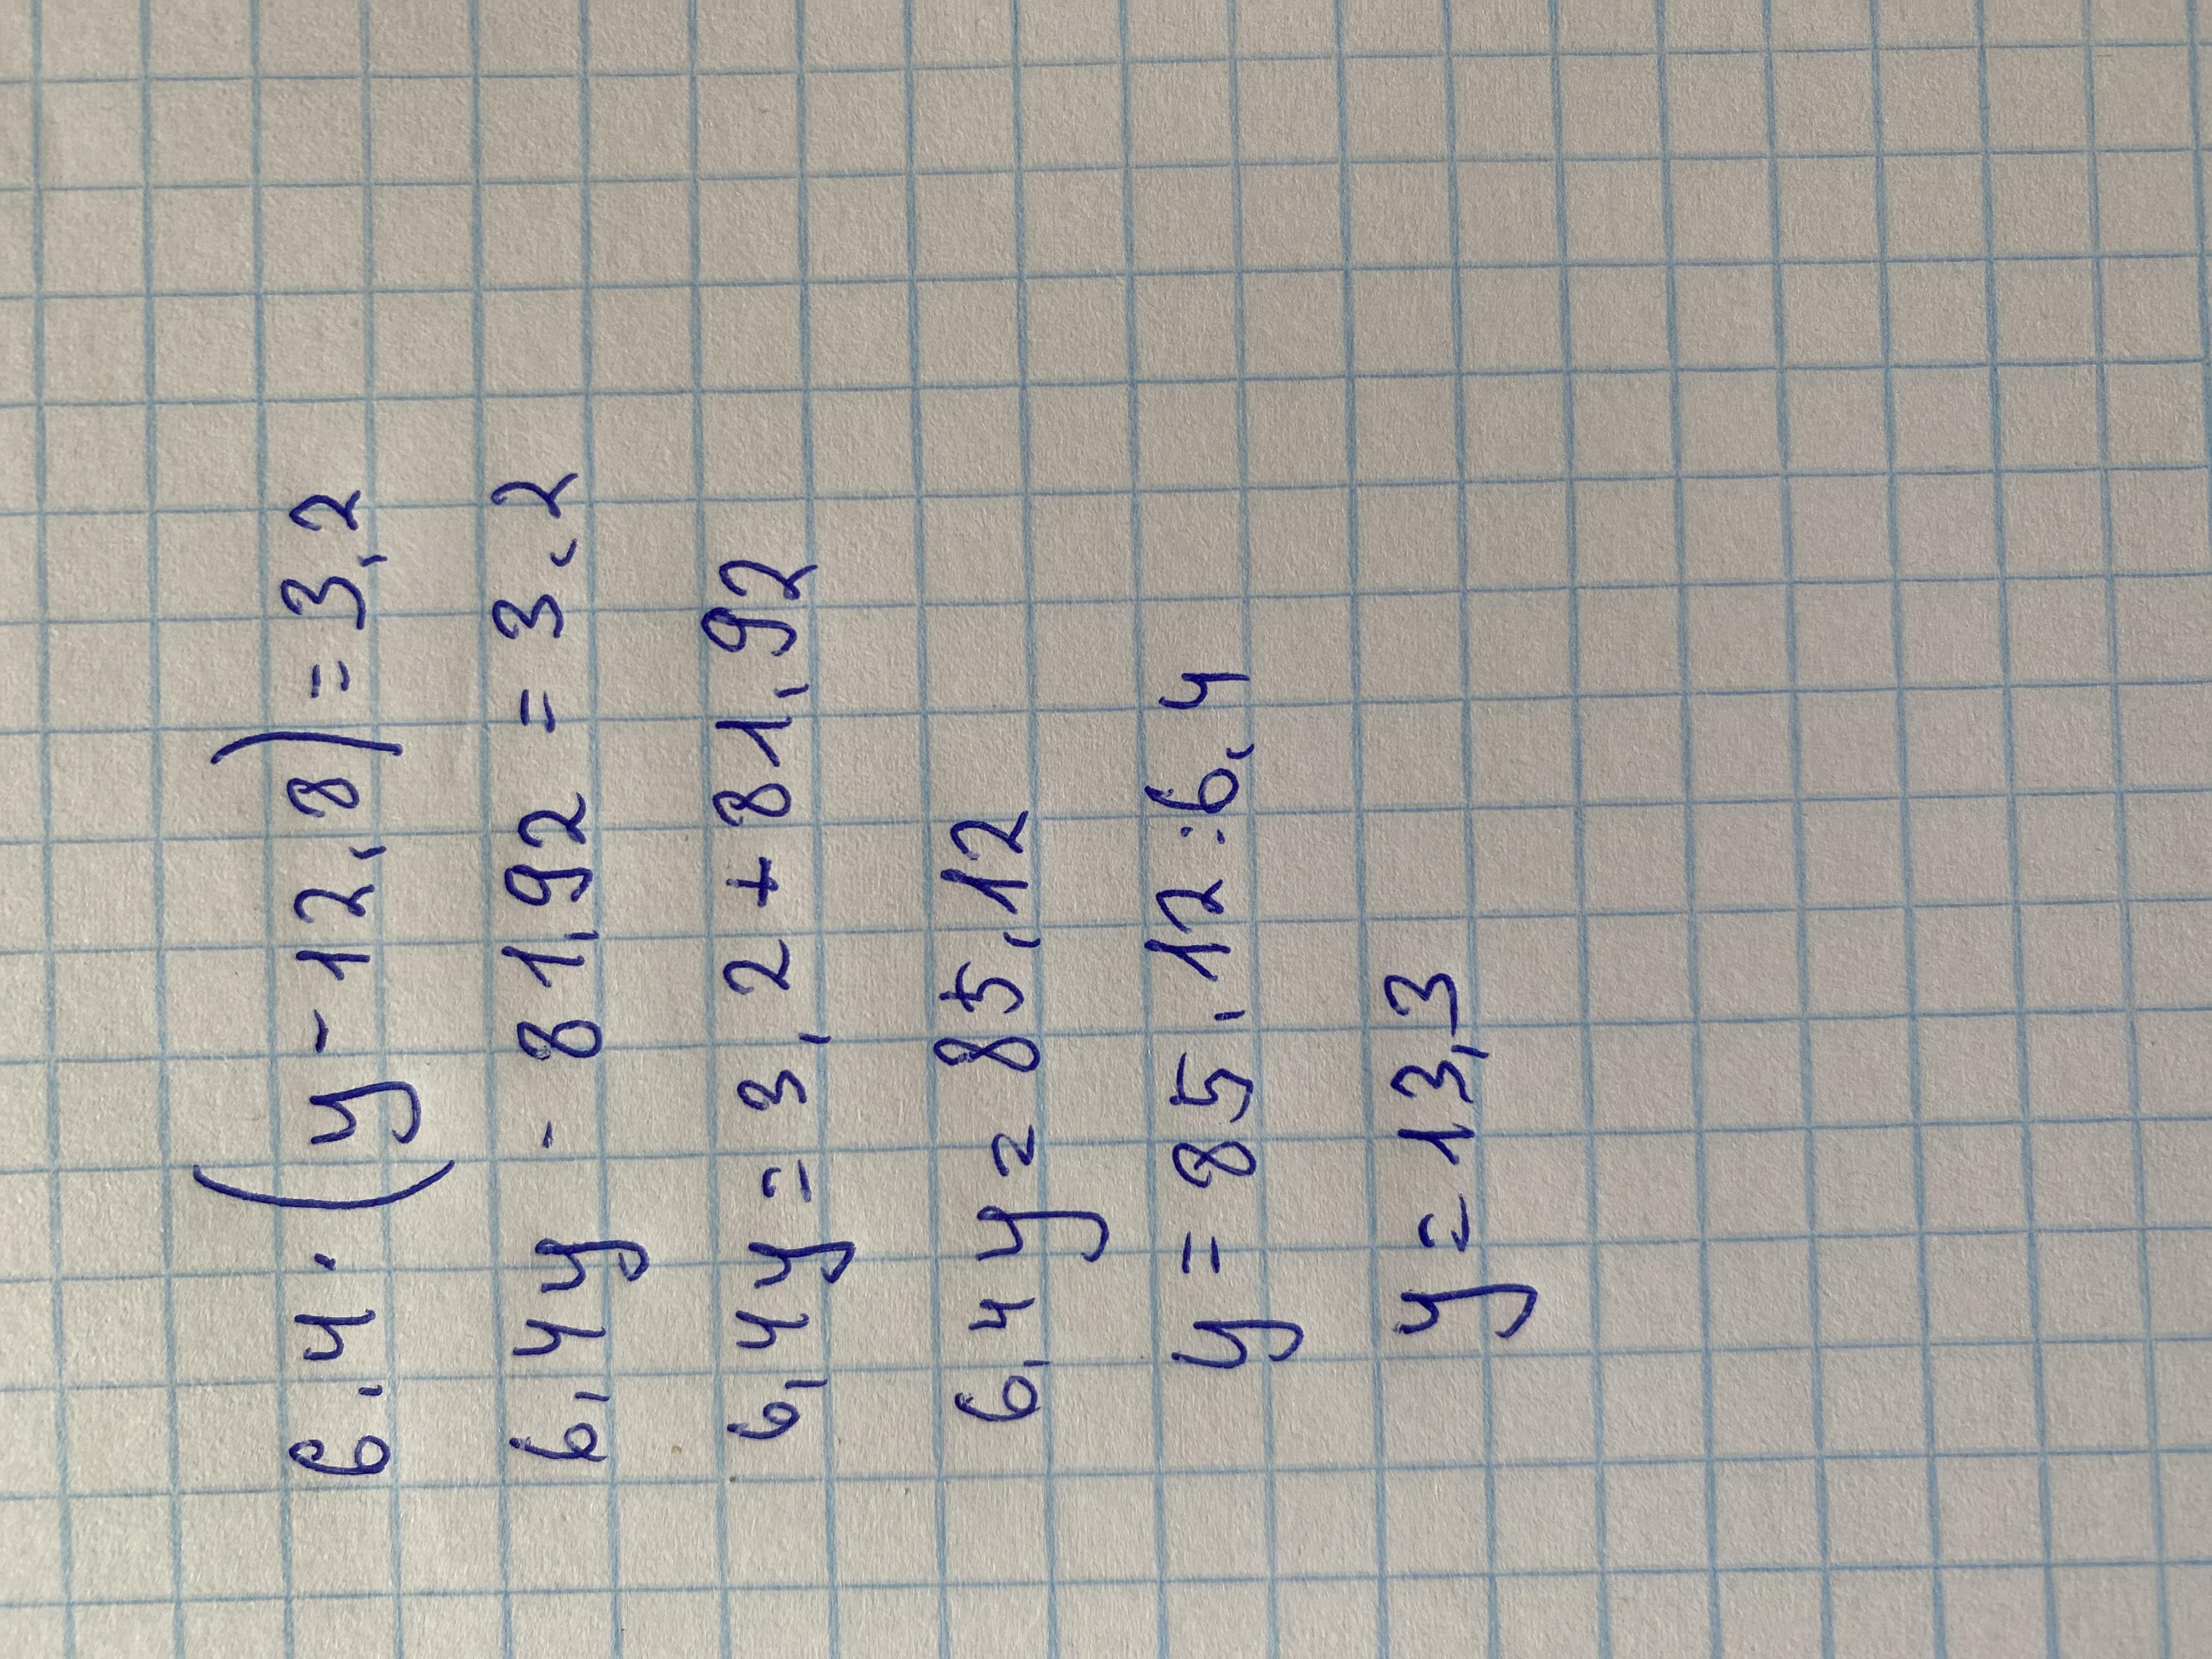 6,4·(y-12,8)=3,2
6,4y-81,92=3,2
6,4y=3,2+81,92
6,4y=85,12
y=85,12:6,4
y=13,3